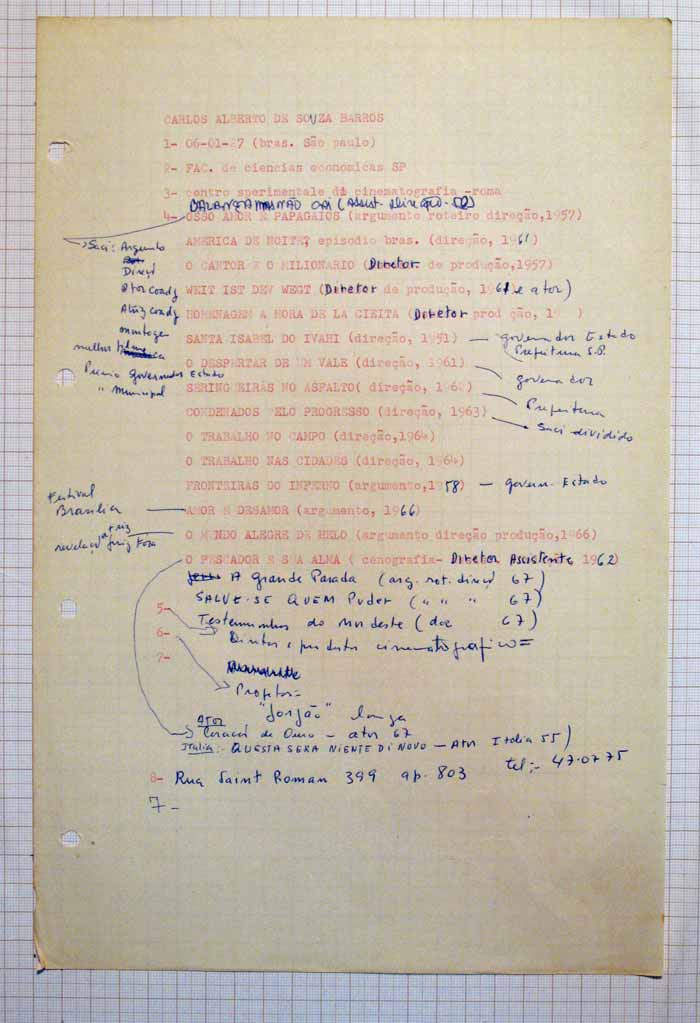 CARLOS ALBERTO DE SOUZA BARROS
1- 06-01-27 (bras. São paulo)
2- FAC. de ciencias economicas SP
3- centro sperimentale di cinematografia -roma
BALANÇA MAS NÃO CAI (Assist. direção - 52)
4- OSSO AMOR E PAPAGAIOS (argumento roteiro direção,1957)
Saci: Argumento
Direçã
Ator coadj
Atriz coadj
montagem
melhor filme
Premio Governador Estado
" Municipal
AMERICA DE NOITE, episodio bras. (direção, 1961)
O CANTOR E O MILIONARIO (Diretor de produção,1957)
WEIT IST DEW WEGT (Diretor de produção, 1961 e ator)
HOMENAGEM A HORA DE LA CIEITA (Diretor prod ção, 19 )
SANTA ISABEL DO IVAHI (direção, 1951) — governador Estado
Prefeitura S.P.
O DESPERTAR DE UM VALE (direção, 1961) governador
SERINGUEIRAS NO ASFALTO( direção, 1962) Prefeitura
CONDENADOS PELO PROGRESSO (direção, 1963) Saci dividido
O TRABALHO NO CAMPO (direção,1964)
O TRABALHO NAS CIDADES (direção, 1964)
FRONTEIRAS DO INFERNO (argumento,1958) — govern. Estado
Festival
Brasilia
AMOR E DESAMOR (argumento, 1966)
revelação atriz
O MUNDO ALEGRE DE HELO (argumento direção produção,1966)
O PESCADOR E SUA ALMA ( cenografia- Diretor Assistente 1962)
A Grande Parada (arg. rot. direçã 67)
SALVE-SE QUEM Puder (" " " 67)
5- Testemunhos do Nordeste (doc 67)
6- Diretor e produtor cinematografico =
7-
Projetos=
"Jorjão" longa
ATOR
Coração de Ouro - ator 67
Italia:- QUESTA SERA NIENTE DI NUOVO — Ator Italia 55)
8- Rua Saint Roman 399 ap. 803 tel:- 47.07.75
7-